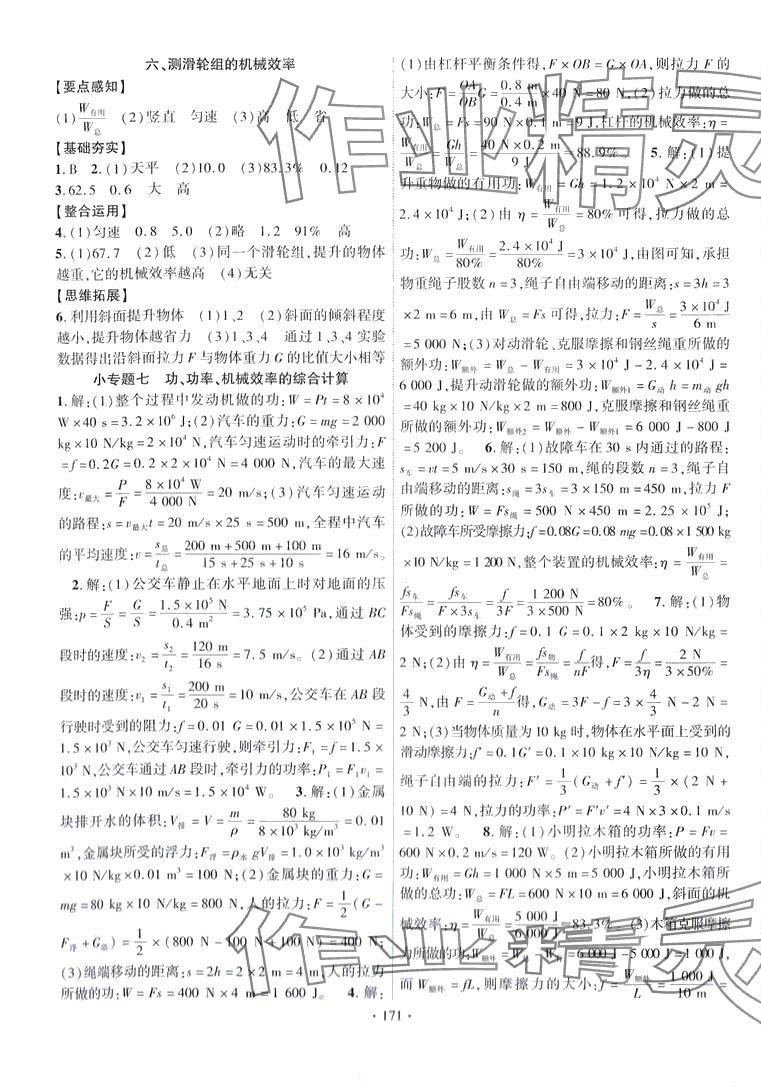 六、测滑轮组的机械效率
【要点感知】
(1) W有用/W总 (2)竖直 匀速 (3)高 低 省
【基础夯实】
1.B 2.(1)天平 (2)10.0 (3)83.3% 0.12
3.62.5 0.6 大 高
【整合运用】
4.(1)匀速 0.8 5.0 (2)略 1.2 91% 高
5.(1)67.7 (2)低 (3)同一个滑轮组,提升的物体
越重,它的机械效率越高 (4)无关
【思维拓展】
6.利用斜面提升物体 (1)1、2 (2)斜面的倾斜程度
越小,提升物体越省力 (3)1、3 通过1、4实验
数据得出沿斜面拉力F与物体重力G的比值大小相等
小专题七 功、功率、机械效率的综合计算
1.解:(1)整个过程中发动机做的功:W=Pt=8×10⁴
W×40 s=3.2×10⁶ J;(2)汽车的重力:G=mg=2 000
kg×10 N/kg=2×10⁴ N,汽车匀速运动时的牵引力:F
=f=0.2G=0.2×2×10⁴ N=4 000 N,汽车的最大速
度:v最大=P/F=8×10⁴ W/4 000 N=20 m/s;(3)汽车匀速运动
的路程:s=v最大t=20 m/s×25 s=500 m,全程中汽车
的平均速度:v=s总/t总=(200 m+500 m+100 m)/(15 s+25 s+10 s)=16 m/s。
2.解:(1)公交车静止在水平地面上时对地面的压
强:p=F/S=G/S=1.5×10⁵ N/0.4 m²=3.75×10⁵ Pa,通过BC
段时的速度:v₂=s₂/t₂=120 m/16 s=7.5 m/s。(2)通过AB
段时的速度:v₁=s₁/t₁=200 m/20 s=10 m/s,公交车在AB段
行驶时受到的阻力:f=0.01 G=0.01×1.5×10⁵ N=
1.5×10³ N,公交车匀速行驶,则牵引力:F₁=f=1.5×
10³ N,公交车通过AB段时,牵引力的功率:P₁=F₁v₁=
1.5×10³ N×10 m/s=1.5×10⁴ W。 3.解:(1)金属
块排开水的体积:V排=V=m/ρ=80 kg/(8×10³ kg/m³)=0.01
m³,金属块所受的浮力:F浮=ρ水gV排=1.0×10³ kg/m³
×10 N/kg×0.01 m³=100 N;(2)金属块的重力:G=
mg=80 kg×10 N/kg=800 N,人的拉力:F=1/2(G-
F浮+G动)=1/2×(800 N-100 N+100 N)=400 N;
(3)绳端移动的距离:s=2h=2×2 m=4 m,人的拉力
所做的功:W=Fs=400 N×4 m=1 600 J。 4.解:
(1)由杠杆平衡条件得,F×OB=G×OA,则拉力F的
大小:F=OA/OB G=0.8 m/0.4 m×40 N=80 N,(2)拉力做的总
功:W总=Fs=90 N×0.1 m=9 J,杠杆的机械效率:η=
W有用/W总=Gh/Fs=40 N×0.2 m/9 J≈88.9%。 5.解:(1)提
升重物做的有用功:W有用=Gh=1.2×10⁴ N×2 m=
2.4×10⁴ J;(2)由η=W有用/W总=80%可得,拉力做的总
功:W总=W有用/80%=2.4×10⁴ J/80%=3×10⁴ J,由图可知,承担
物重绳子股数n=3,绳子自由端移动的距离:s=3h=3
×2 m=6 m,由W总=Fs可得,拉力:F=W总/s=3×10⁴ J/6 m
=5 000 N;(3)对动滑轮、克服摩擦和钢丝绳重所做的
额外功:W额外=W总-W有用=3×10⁴ J-2.4×10⁴ J=
6 000 J,提升动滑轮做的额外功:W额外1=G动h=m动gh
=40 kg×10 N/kg×2 m=800 J,克服摩擦和钢丝绳重
所做的额外功:W额外2=W额外-W额外1=6 000 J-800 J
=5 200 J。 6.解:(1)故障车在30 s内通过的路程:
s车=vt=5 m/s×30 s=150 m,绳的段数n=3,绳子自
由端移动的距离:s绳=3s车=3×150 m=450 m,拉力F
所做的功:W总=Fs绳=500 N×450 m=2.25×10⁵ J;
(2)故障车所受摩擦力:f=0.08G=0.08mg=0.08×1 500 kg
×10 N/kg=1 200 N,整个装置的机械效率:η=W有用/W总=
fs车/Fs绳=fs车/(F×3s车)=f/3F=1 200 N/(3×500 N)=80%。 7.解:(1)物
体受到的摩擦力:f=0.1 G=0.1×2 kg×10 N/kg=
2 N;(2)由η=W有用/W总=fs物/Fs绳=f/nF得,F=f/3η=2 N/(3×50%)=
4/3 N,由F=(G动+f)/n得,G动=3F-f=3×4/3 N-2 N=
2 N;(3)当物体质量为10 kg时,物体在水平面上受到的
滑动摩擦力:f′=0.1G′=0.1×10 kg×10 N/kg=10 N,
绳子自由端的拉力:F′=1/3(G动+f′)=1/3×(2 N+
10 N)=4 N,拉力的功率:P′=F′v′=4 N×3×0.1 m/s
=1.2 W。 8.解:(1)小明拉木箱的功率:P=Fv=
600 N×0.2 m/s=120 W。(2)小明拉木箱所做的有用
功:W有用=Gh=1 000 N×5 m=5 000 J,小明拉木箱所
做的总功:W总=FL=600 N×10 m=6 000 J,斜面的机
械效率:η=W有用/W总=5 000 J/6 000 J≈83.3%。(3)木箱克服摩擦
力所做的功:W额外=W总-W有用=6 000 J-5 000 J=1 000
J,由W额外=fL,则摩擦力的大小:f=W额外/L=1 000 J/10 m=
· 171 ·
作业精灵
作业精灵